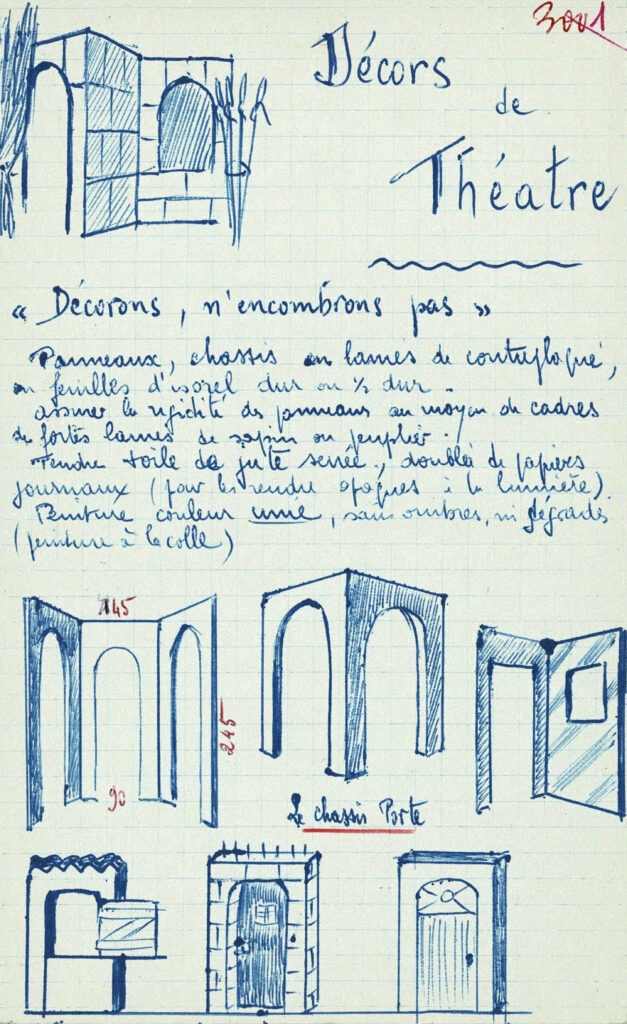 3001
Décors
de
Théatre
« Décorons, n'encombrons pas »
Panneaux, chassis en lames de contreplaqué,
en feuilles d'isorel dur ou ½ dur.
assurer la rigidité des panneaux au moyen de cadres
de fortes lames de sapin ou peuplier.
Tendre toile de jute serrée, doublée de papiers
journaux (pour les rendre opaques à la lumière)
Peinture couleur unie, sans ombres, ni dégradés
(peinture à la colle)
145
245
90
Le chassis Porte